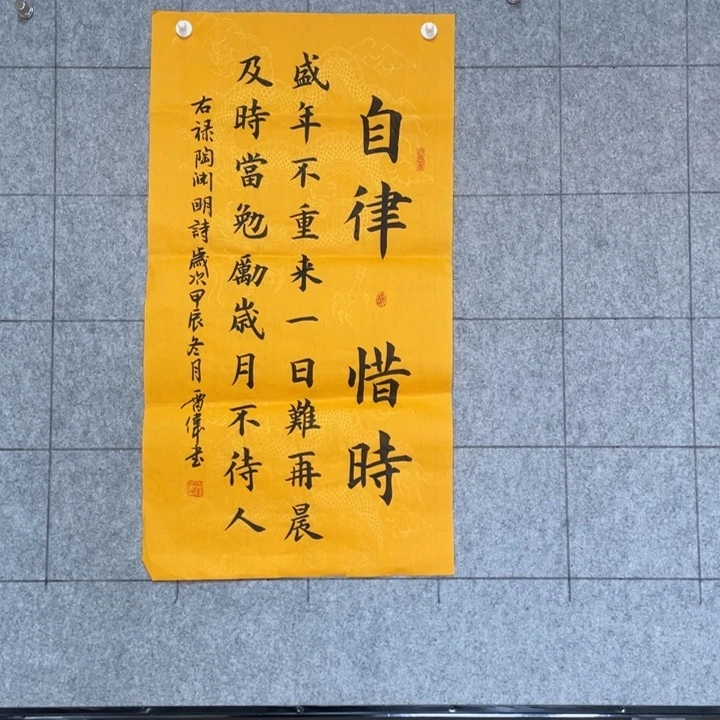 自律 惜時
盛年不重来一日難再晨
及時當勉勵歲月不待人
右禄陶渊明詩歲次甲辰冬月
偉書